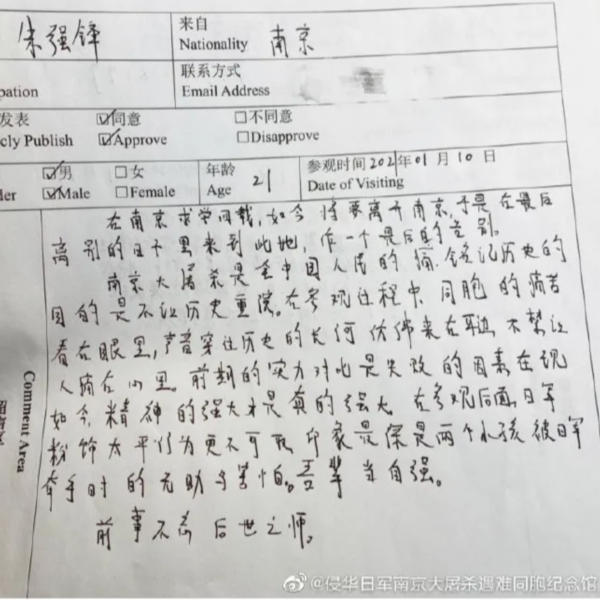 朱强锋 来自 Nationality 南京
pation 联系方式 Email Address
发表 cly Publish ☑同意 ☑Approve □不同意 □Disapprove
der ☑男 ☑Male □女 □Female 年龄 Age 21 参观时间 2021年01月10日 Date of Visiting
Comment Area
在南京求学四载,如今将要离开南京,于是在最后
离别的日子里来到此地,作一个最后的告别。
南京大屠杀是全中国人民的痛,铭记历史的
目的是不让历史重演。在参观过程中,同胞的痛苦
看在眼里,声音穿过历史的长河仿佛来在耳边,不禁让
人痛在心里。前期的实力对比是失败的因素在现
如今,精神的强大才是真的强大。在参观后面,日军
粉饰太平行为更不可取,印象最深是两个小孩被日军
牵手时的无助与害怕。吾辈当自强。
前事不忘 后世之师。
@侵华日军南京大屠杀遇难同胞纪念馆